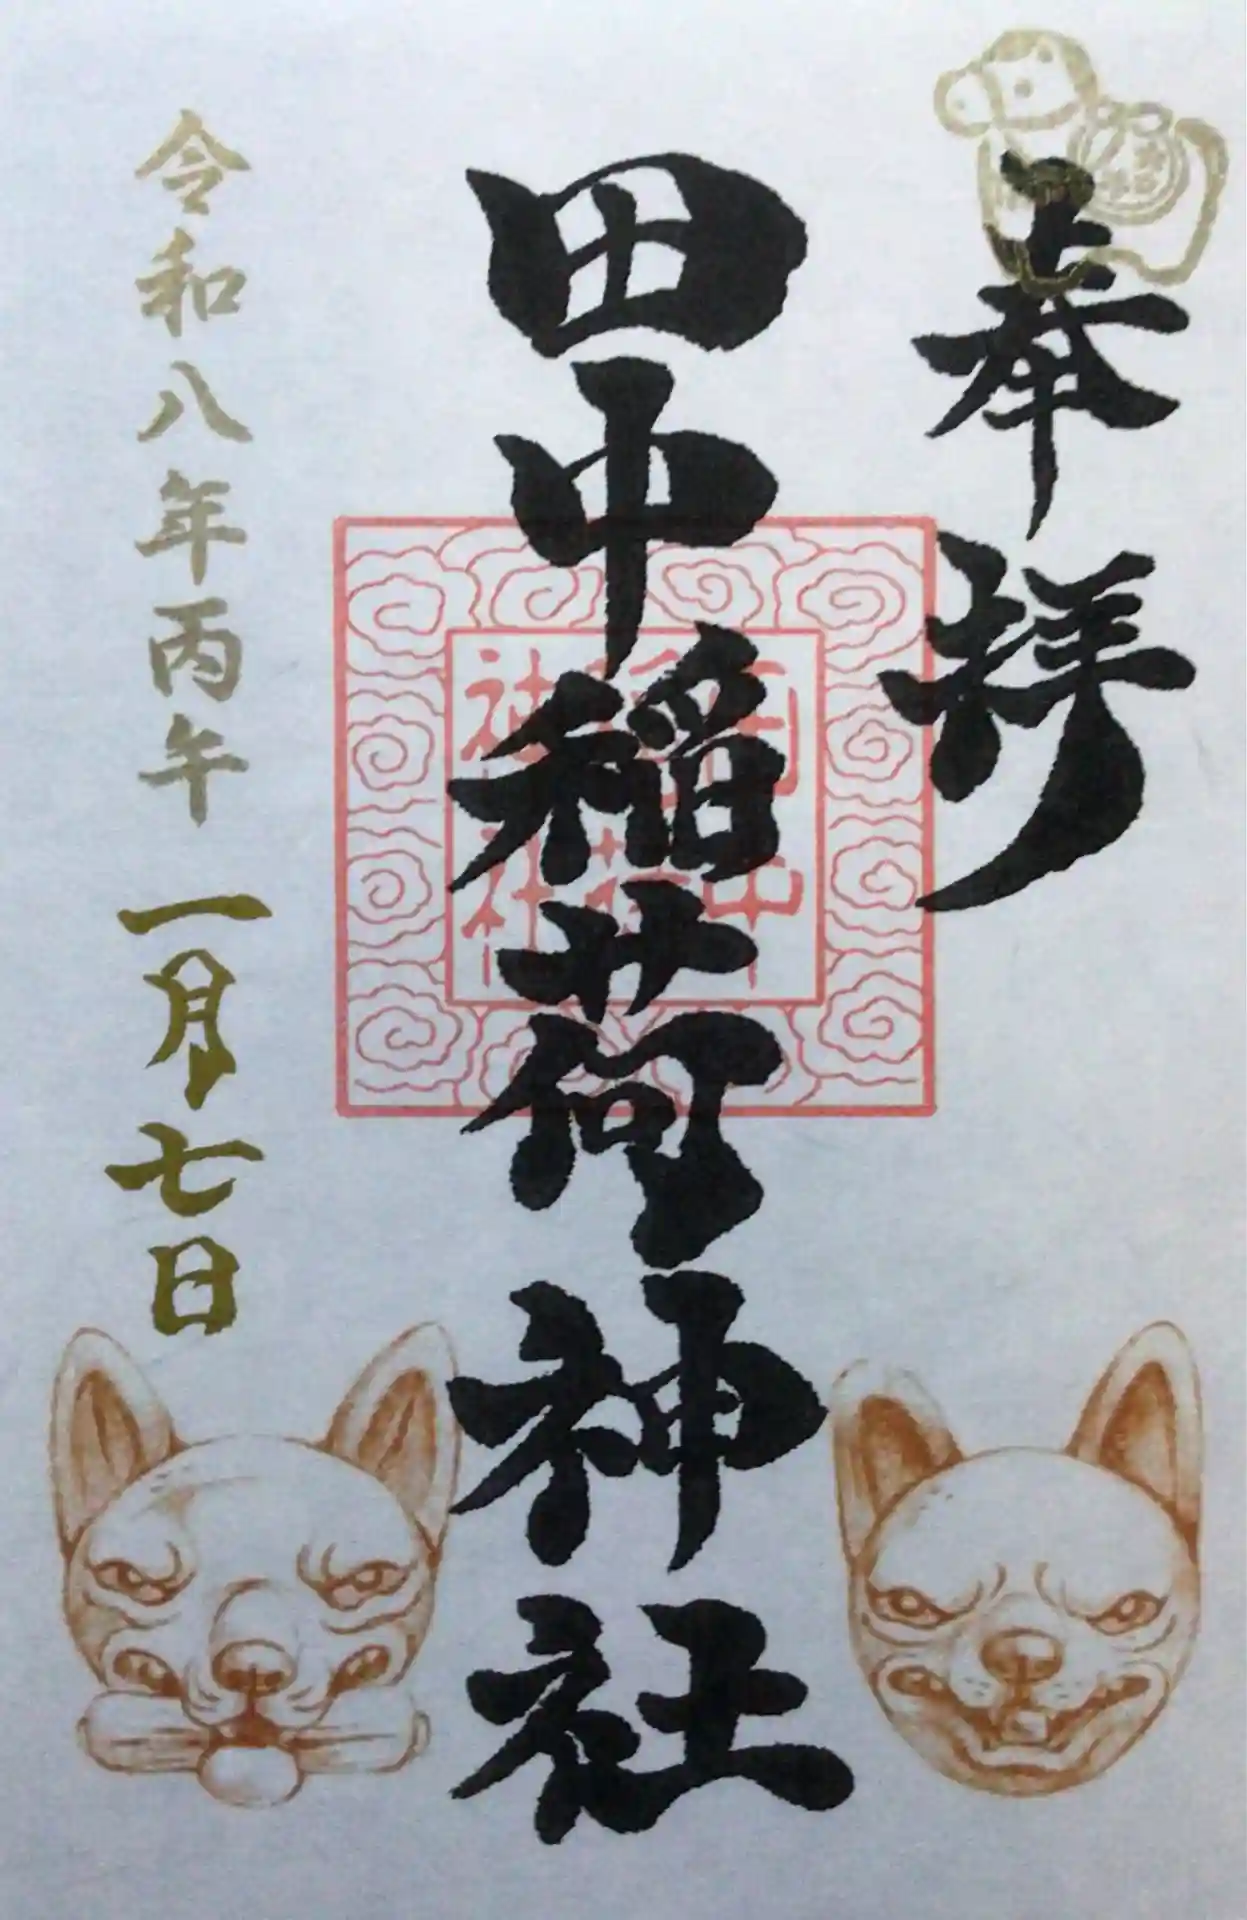 奉拝
田中稲荷神社
田中
稲荷
神社
令和八年丙午 一月七日